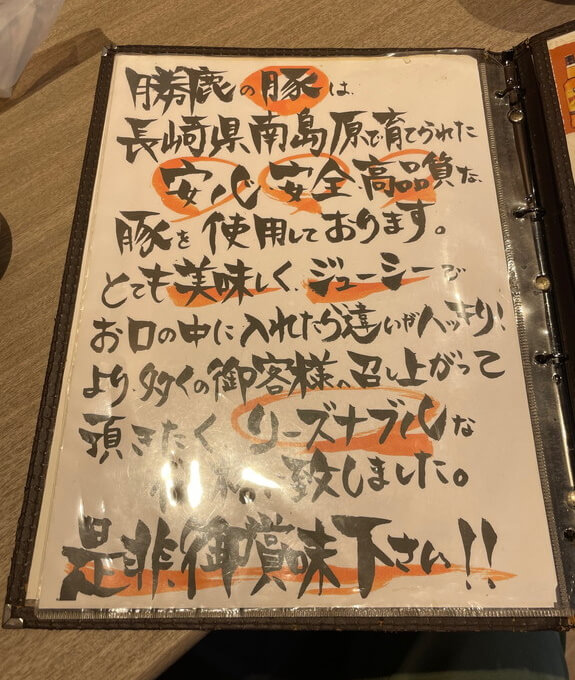 勝鹿の豚は、
長崎県南島原で育てられた
安心、安全、高品質な
豚を使用しております。
とても美味しく、ジューシーで
お口の中に入れたら違いがハッキリ!
より多くの御客様へ召し上がって
頂きたく、リーズナブルな
に致しました。
是非、御賞味下さい!!